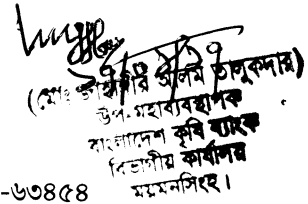 (মোঃ জাহাঙ্গীর আলম তালুকদার)
উপ-মহাব্যবস্থাপক
বাংলাদেশ কৃষি ব্যাংক
বিভাগীয় কার্যালয়
ময়মনসিংহ।
-৬৩৪৫৪